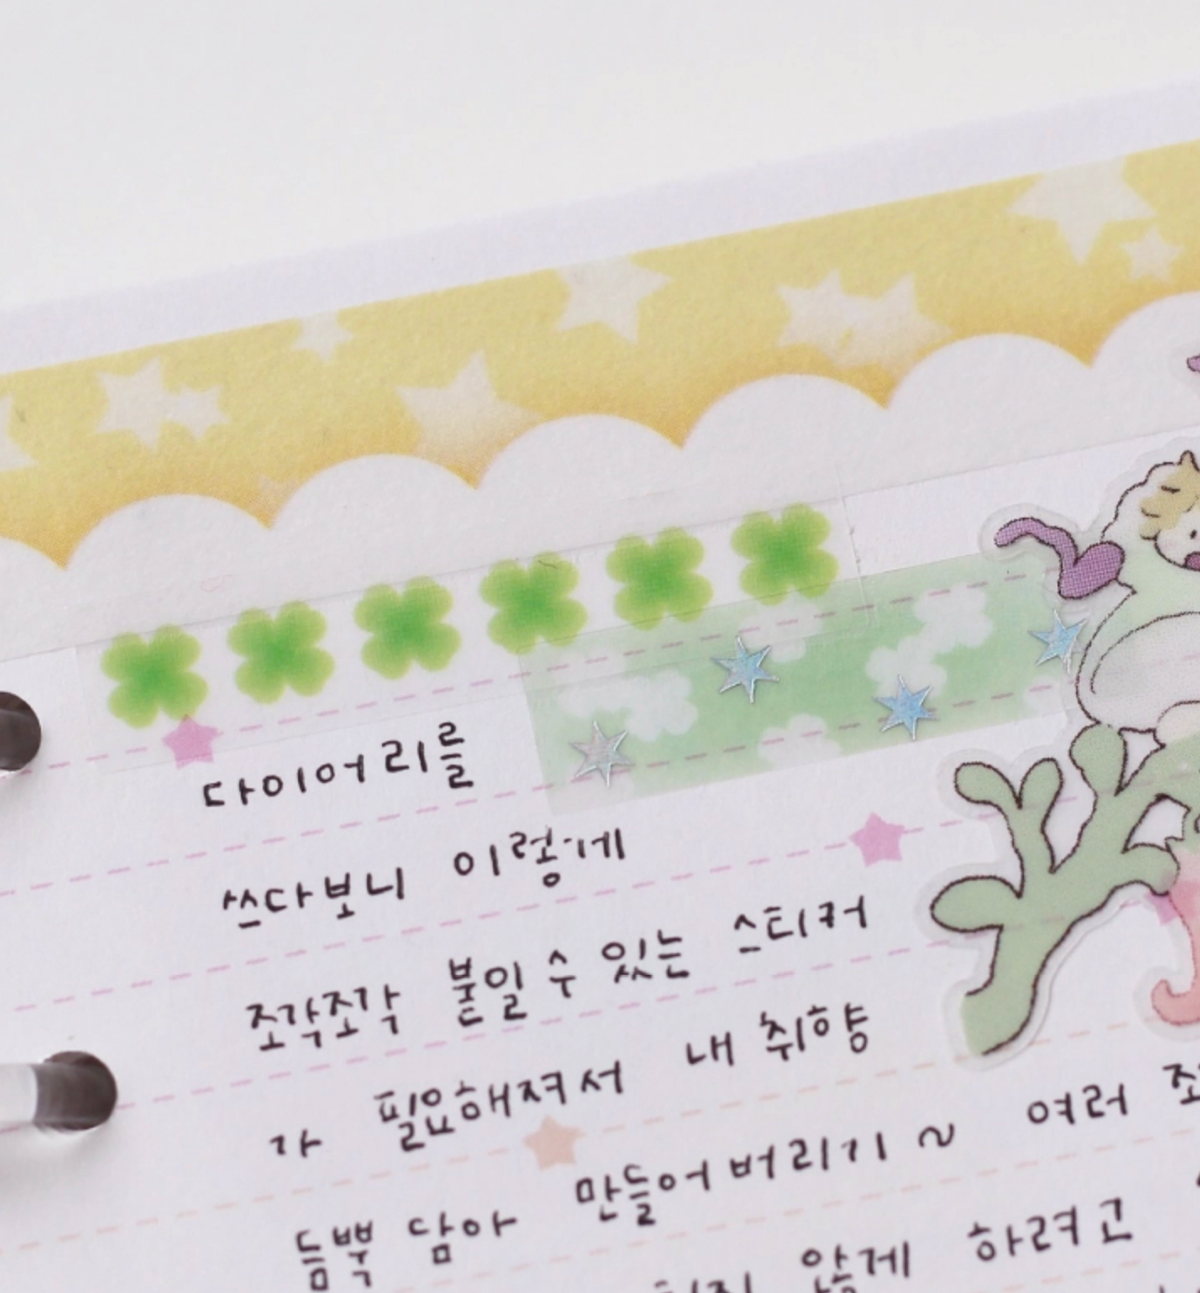 다이어리를
쓰다보니 이렇게
조각조각 붙일 수 있는 스티커
가 필요해져서 내 취향
듬뿍 담아 만들어버리기 ~ 여러
않게 하려고